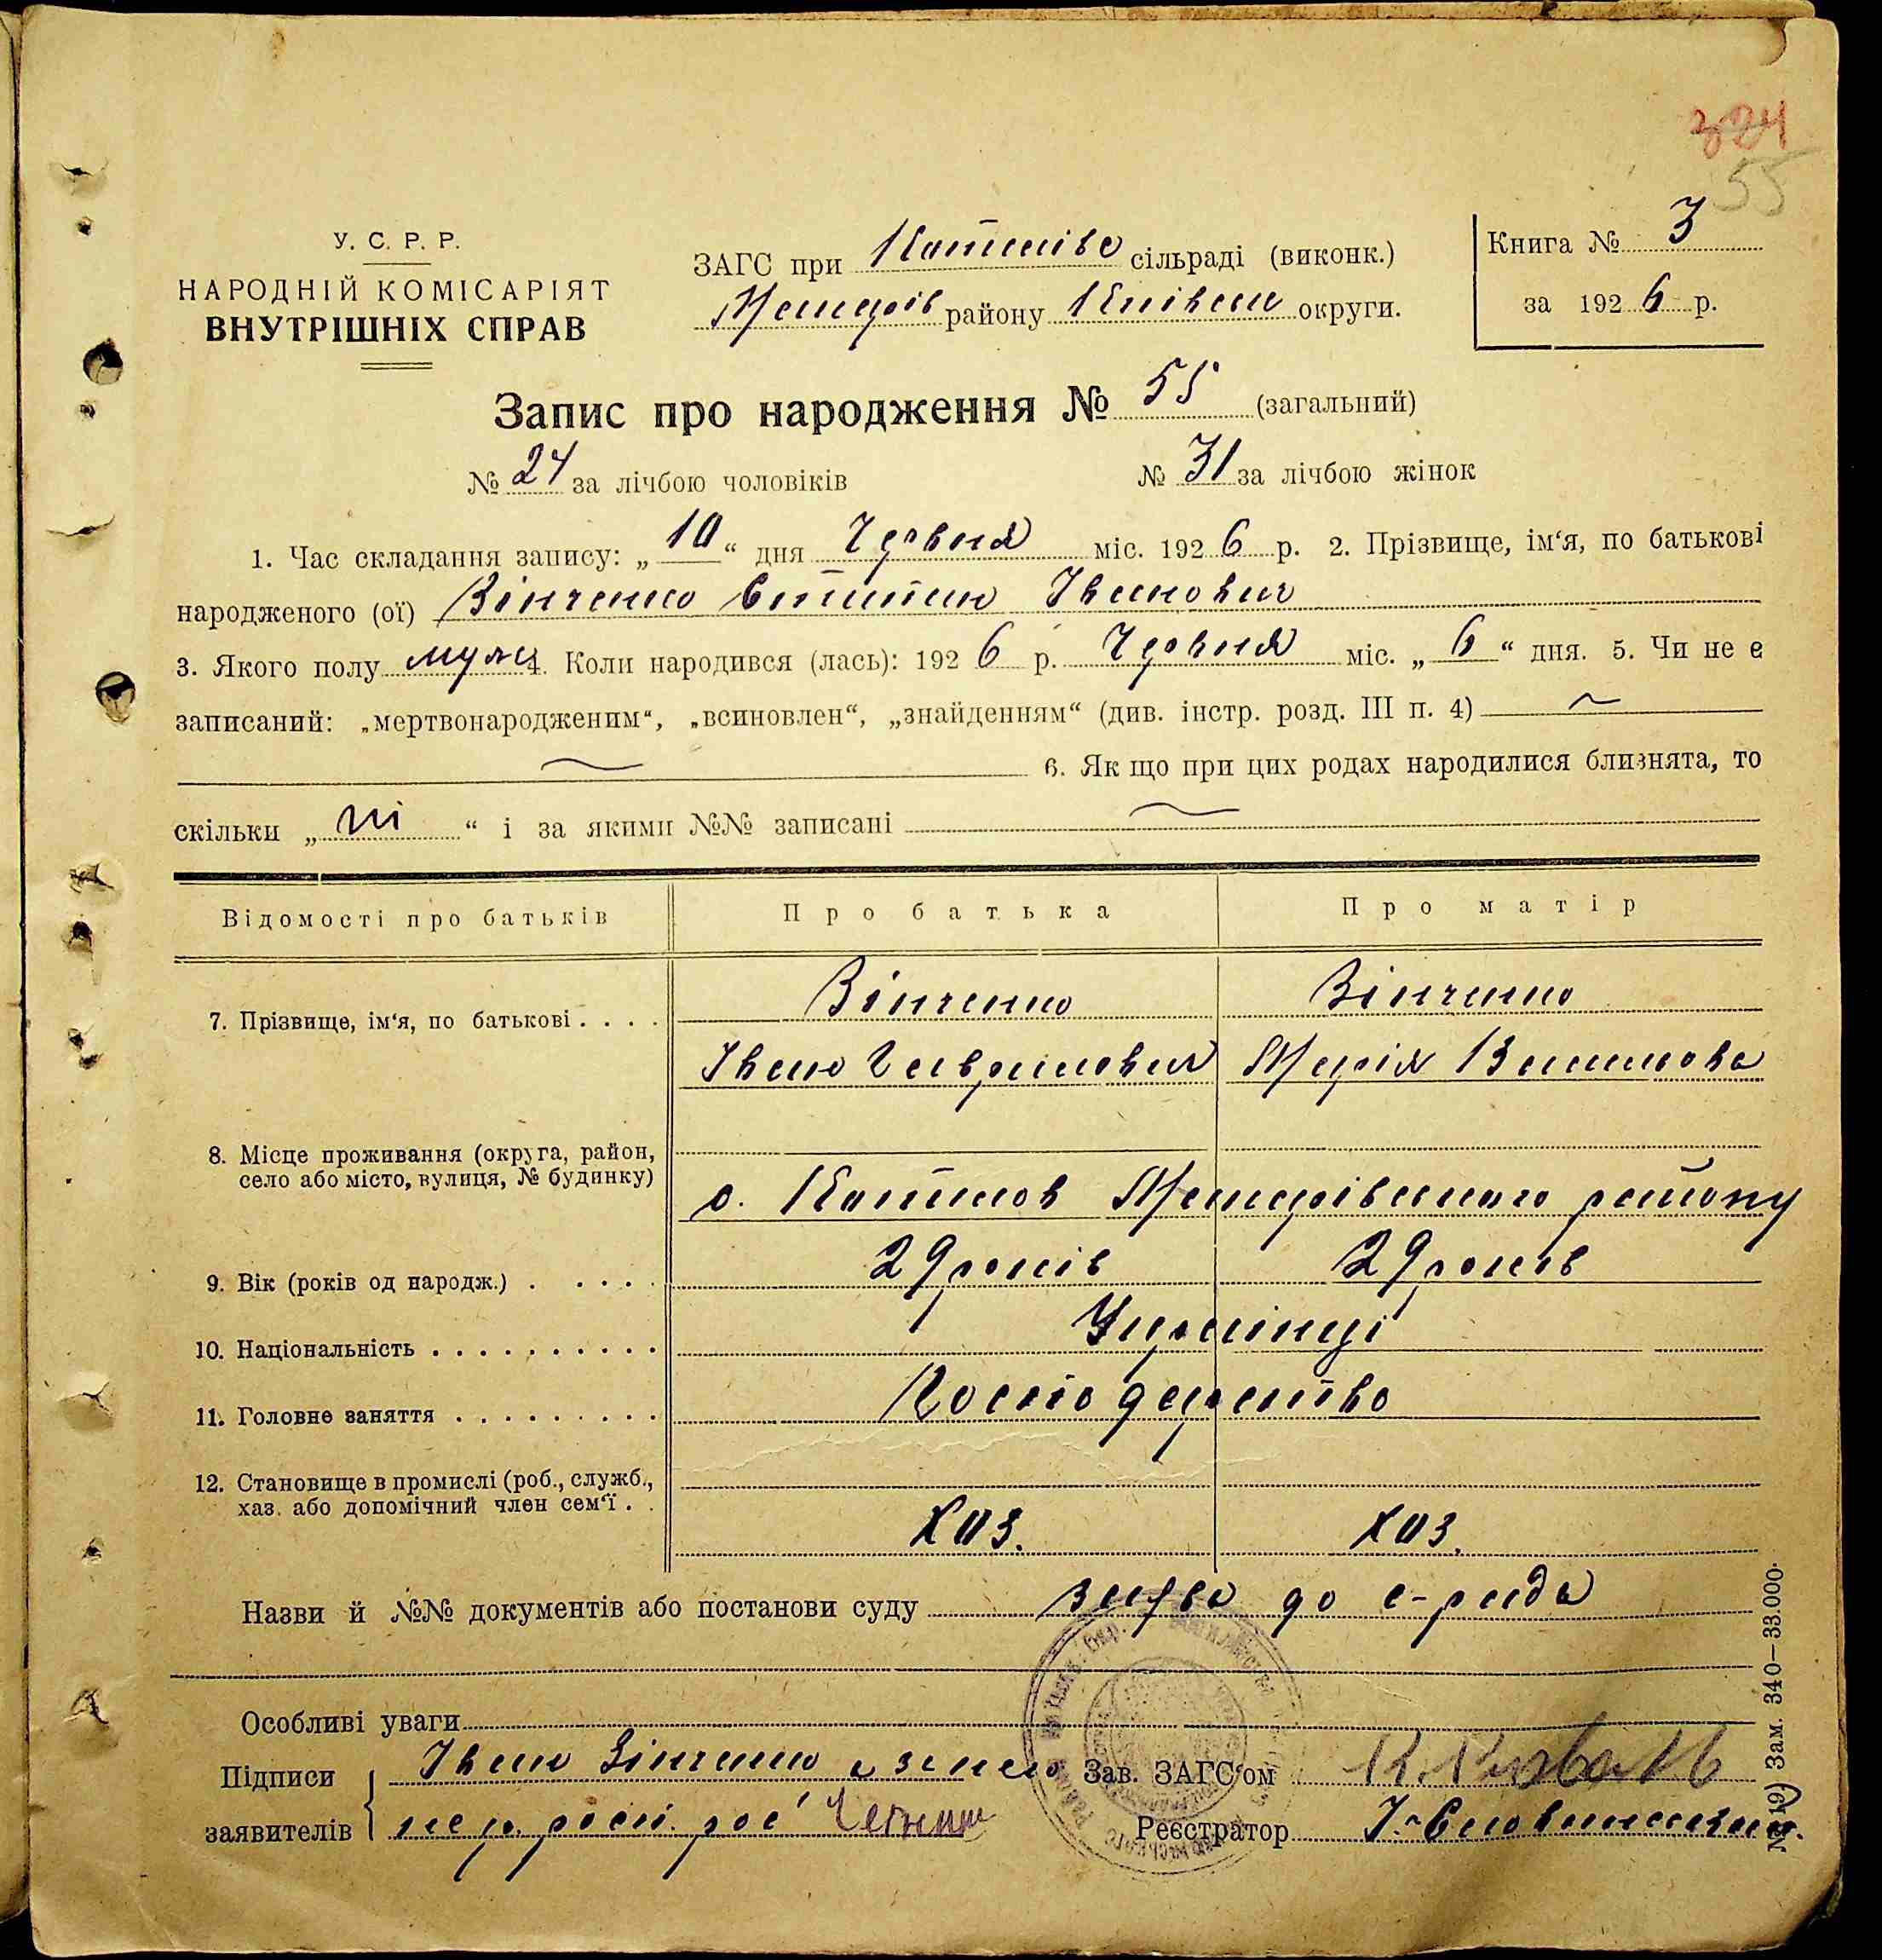 324
55
У. С. Р. Р.
НАРОДНІЙ КОМІСАРІЯТ
ВНУТРІШНІХ СПРАВ
ЗАГС при сільраді (виконк.)
району округи.
Книга № 3
за 1926 р.
Запис про народження № 55 (загальний)
№ 24 за лічбою чоловіків № 31 за лічбою жінок
1. Час складання запису: „10“ дня Червня міс. 1926 р. 2. Прізвище, ім‘я, по батькові
народженого (ої) Зінченко Іванович
3. Якого полу муж 4. Коли народився (лась): 1926 р. Червня міс. „6“ дня. 5. Чи не є
записаний: „мертвонародженим“, „всиновлен“, „знайденням“ (див. інстр. розд. III п. 4) ~
~ 6. Як що при цих родах народилися близнята, то
скільки „ні“ і за якими №№ записані ~
Відомості про батьків Про батька Про матір
7. Прізвище, ім‘я, по батькові . . . . Зінченко Зінченко
Іван Гаврилович Марія
8. Місце проживання (округа, район,
село або місто, вулиця, № будинку)
с. району
9. Вік (років од народж.) . . . . . 29 років 29 років
10. Національність . . . . . . . . . . Українці
11. Головне заняття . . . . . . . . . Господарство
12. Становище в промислі (роб., служб.,
хаз. або допомічний член сем‘ї . .
хаз. хаз.
Назви й №№ документів або постанови суду заява до с-ради
Особливі уваги
Підписи Іван Зінченко а за него Зав. ЗАГС‘ом
заявителів Реєстратор
№ 19) Зам. 340—33.000.